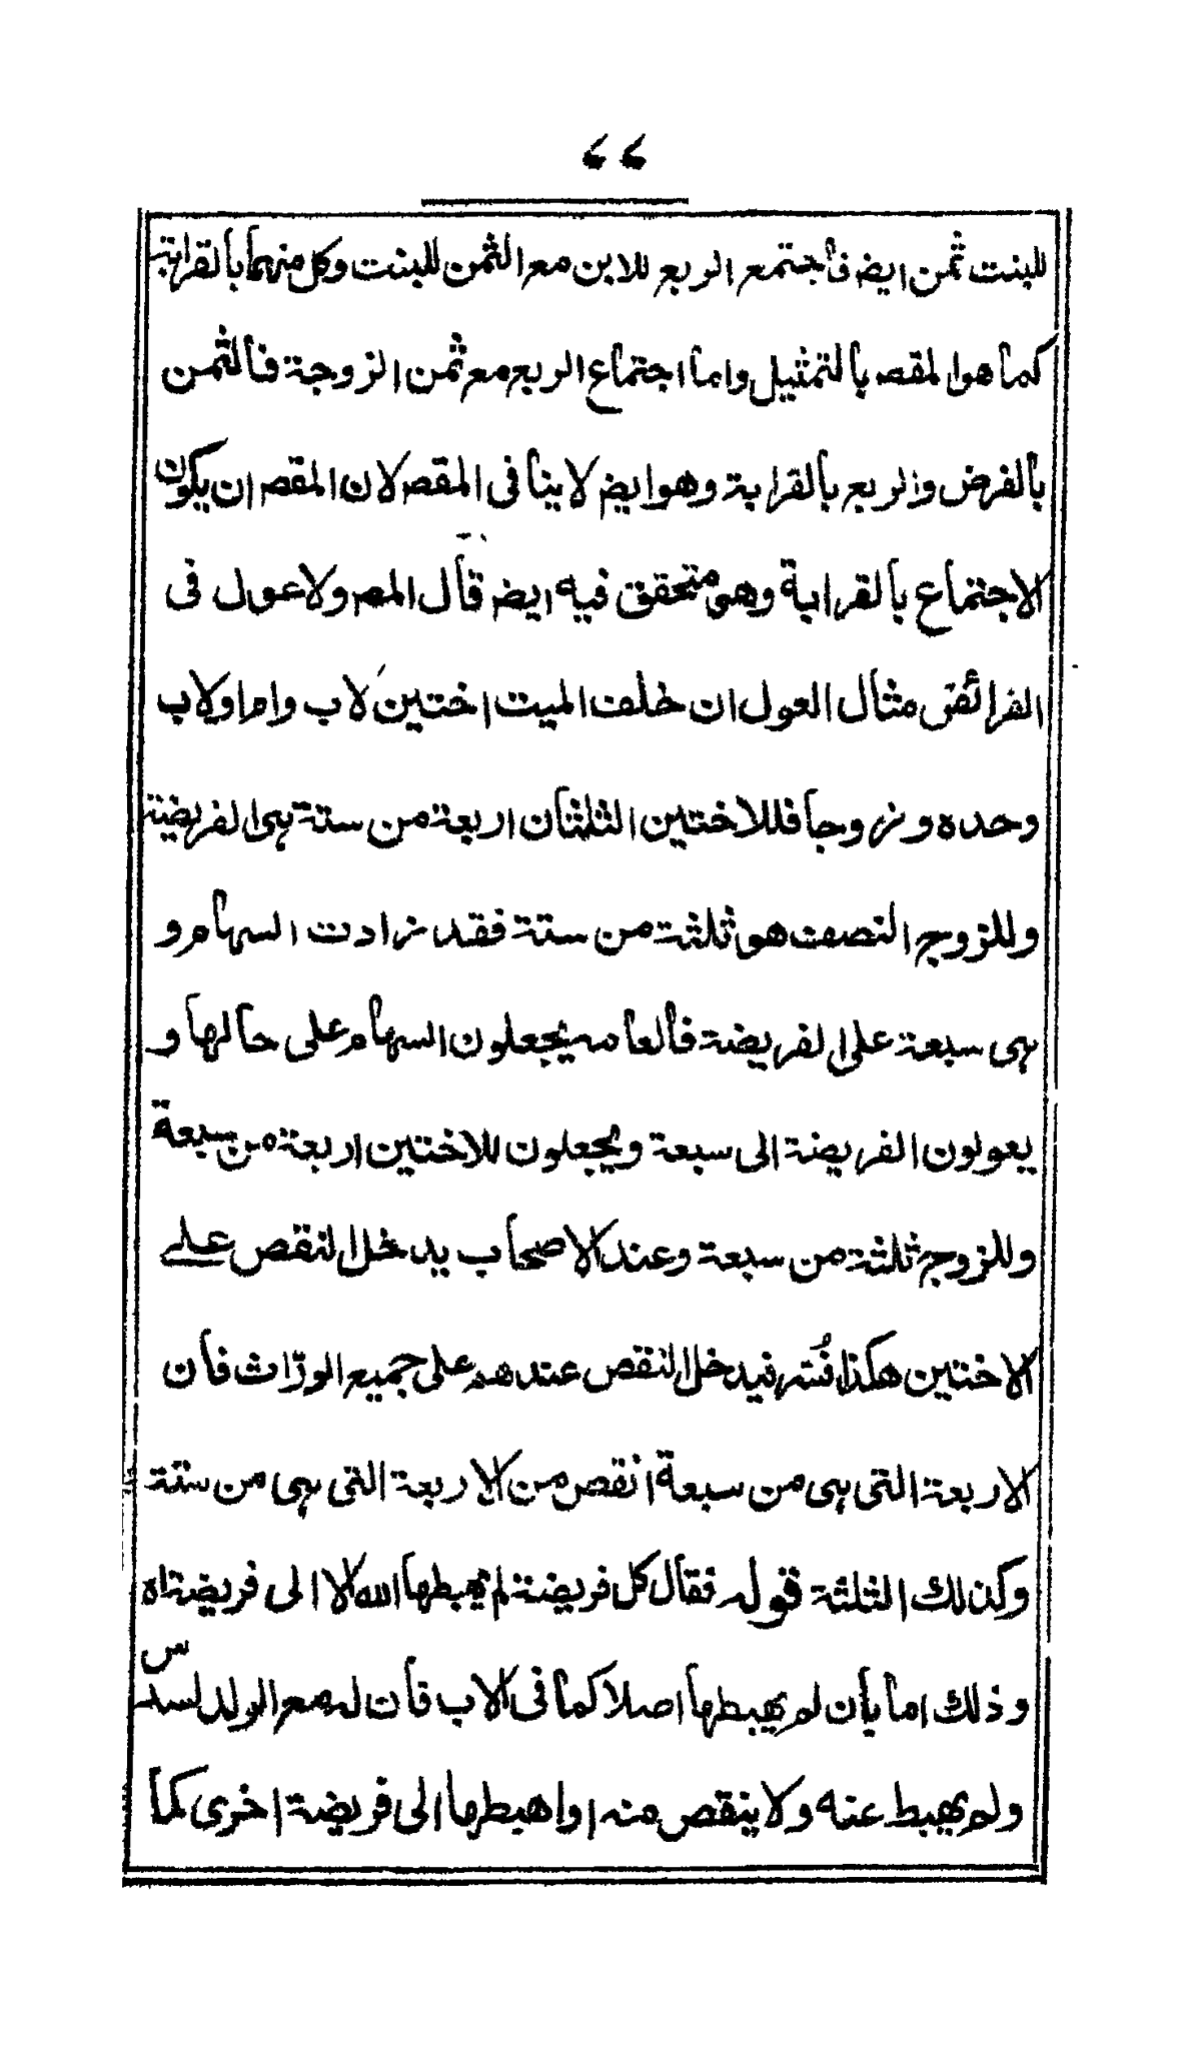 ٤٤
للبنت ثمن ايض فاجتمع الربع للابن مع الثمن للبنت وكل منهما بالقرابة
كما هو المقص بالتمثيل واما اجتماع الربع مع ثمن الزوجة فالثمن
بالفرض والربع بالقرابة وهو ايض لا ينافى المقص لان المقص ان يكون
الاجتماع بالقرابة وهو متحقق فيه ايض قال المص ولا عول فى
الفرائض مثال العول ان خلف الميت اختين لاب وام او لاب
وحده وزوجا فللاختين الثلثان اربعة من ستة هى الفريضة
وللزوج النصف هو ثلثة من ستة فقد زادت السهام و
هى سبعة على الفريضة فالعامه يجعلون السهام على حالها و
يعولون الفريضة الى سبعة ويجعلون للاختين اربعة من سبعة
وللزوج ثلثة من سبعة وعند الاصحاب يدخل النقص على
الاختين هكذا فيدخل النقص عندهم على جميع الورّاث فان
الاربعة التى هى من سبعة انقص من الاربعة التى هى من ستة
وكذلك الثلثة قوله فقال كل فريضة لم يهبطها الله الا الى فريضة اه
وذلك اما بان لم يهبطها اصلا كما فى الاب فان له مع الولد لسدس
ولم يهبط عنه ولا ينقص منه او اهبطها الى فريضة اخرى كما